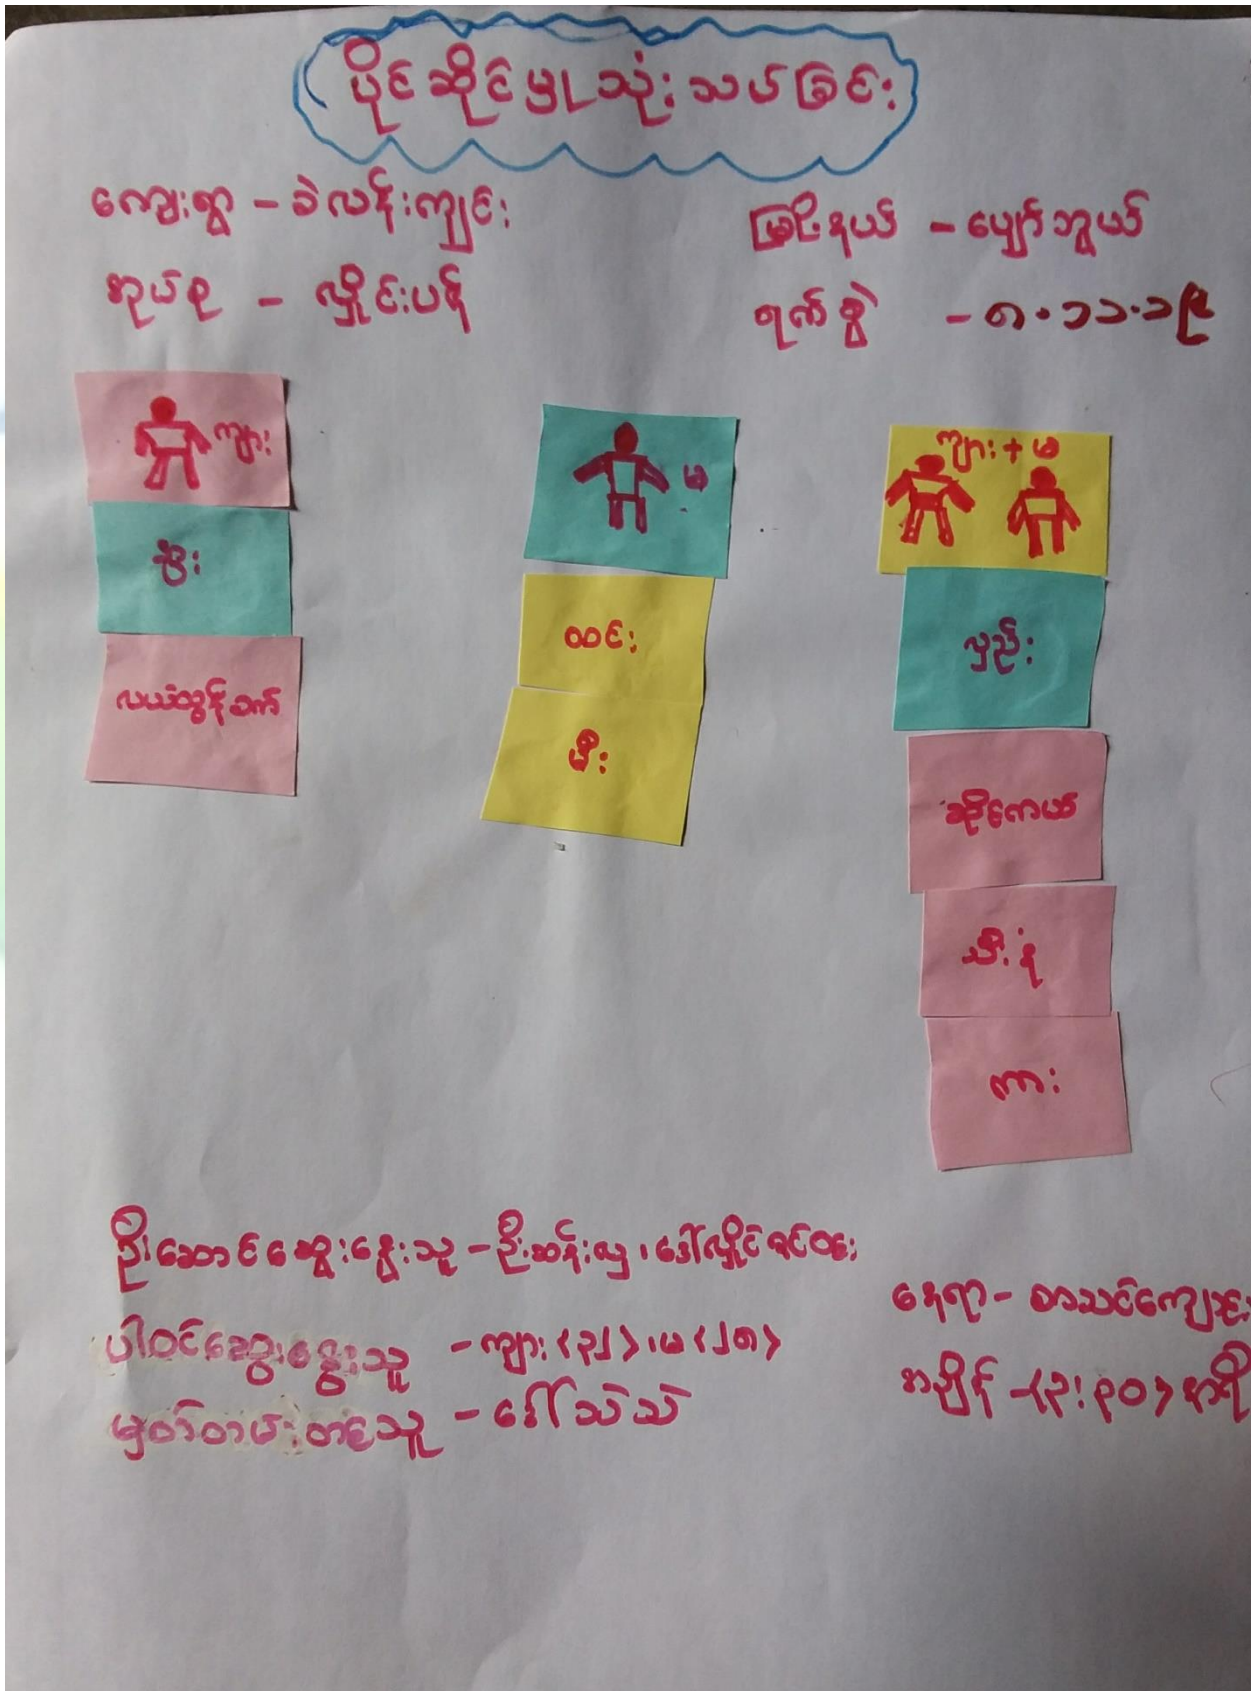 ပိုင်ဆိုင်မှုသုံးသပ်ခြင်း
ကျေးရွာ - ခဲလန်းကျင်း
မြို့နယ် - ပျော်ဘွယ်
အုပ်စု - လှိုင်းပန်
ရက်စွဲ - ၈.၁၁.၁၉
ကျား
မွဲး
လယ်ထွန်စက်
မ
ထင်း
မီး
ကျား + မ
လှည်း
ဆိုင်ကယ်
သီးနှံ
ကား
ဦးဆောင်ဆွေးနွေးသူ - ဦးဆန်းလှ၊ ဒေါ်လှိုင်
ပါဝင်ဆွေးနွေးသူ - ကျား <၃၂>၊ မ <၂၈>
မှတ်တမ်းတင်သူ - ဒေါ်သဲသဲ
နေရာ - စာသင်ကျောင်း
အချိန် - <၃:၃၀> နာရီ